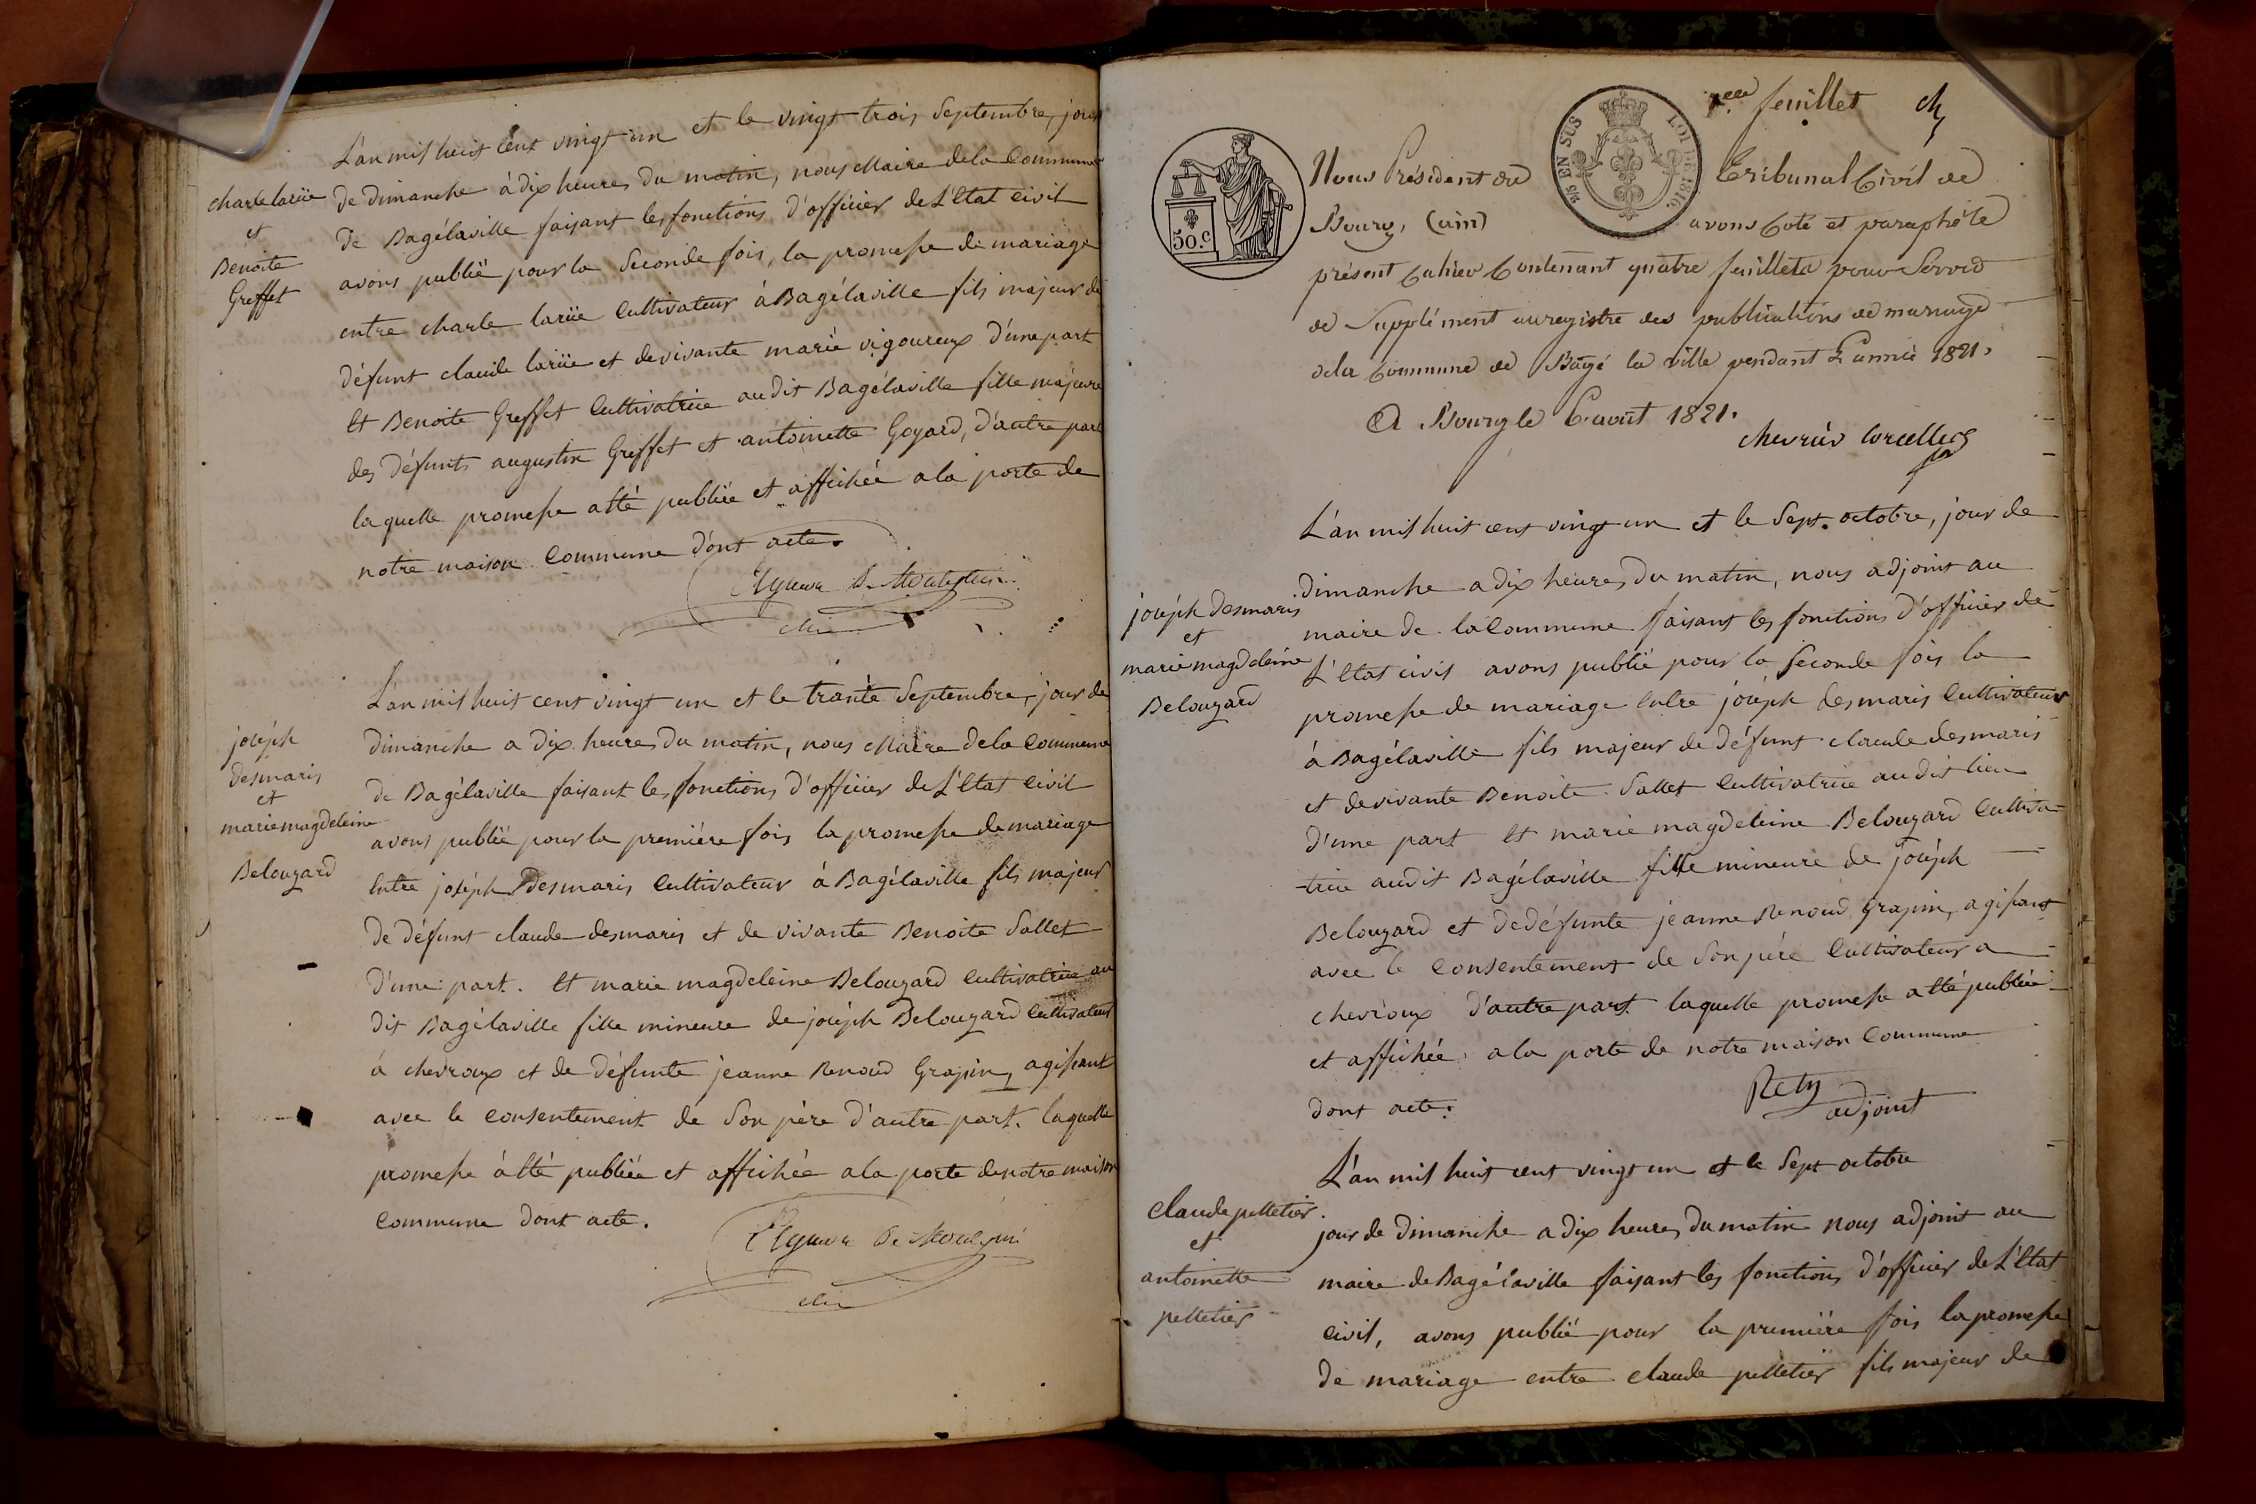 L'an mil huit cent vingt un et le vingt trois Septembre, jour
charle larüe
et
Benoite
Greffet
de dimanche à dix heures du matin, nous Maire de la Commune
de Bagélaville faisant les fonctions d'officier de L'Etat civil
avons publié pour la Seconde fois, la promesse de mariage
entre charle larüe Cultivateur à Bagélaville fils majeur de
défunt claude larüe et de vivante marie vigoureux d'une part
Et Benoite Greffet Cultivatrice audit Bagélaville fille majeure
des défunts augustin Greffet et antoinette Goyard, d'autre part
laquelle promesse a êté publiée et affichée a la porte de
notre maison Commune dont acte.
joséph
desmaris
et
marie magdeleine
Belouzard
L'an mil huit cent vingt un et le trante Septembre, jour de
dimanche a dix heures du matin, nous Maire de la Commune
de Bagélaville faisant les fonctions d'officier de L'Etat Civil
avons publié pour la première fois la promesse de mariage
Entre joséph desmaris Cultivateur à Bagélaville fils majeur
de défunt claude desmaris et de vivante Benoite Sallet
d'une part. Et marie magdeleine Belouzard Cultivatrice au
dit Bagélaville fille mineure de joséph Belouzard Cultivateur
à chevroux et de défunte jeanne Renoud Grapin, agissant
avec le consentement de Son père d'autre part. laquelle
promesse à êté publiée et affichée a la porte de notre maison
Commune dont acte.
feuillet
50.c
EN SUS
LOI DE 1816
Nous Président du Tribunal Civil de
Bourg, (ain) avons Coté et paraphé le
présent Cahier Contenant quatre feuillets pour Servir
de Supplément au registre des publications de mariage
de la Commune de Bagé la ville pendant L'année 1821.
A Bourg le 6 août 1821.
chevrier Corcelles
joséph desmaris
et
marie magdeleine
Belouzard
L'an mil huit cent vingt un et le Sept. octobre, jour de
dimanche a dix heures du matin, nous adjoint au
maire de la Commune faisant les fonctions d'officier de
L'Etat civil avons publié pour la Seconde fois la
promesse de mariage Entre joséph desmaris Cultivateur
à Bagélaville fils majeur de défunt claude desmaris
et de vivante Benoite Sallet Cultivatrice audit lieu
d'une part Et marie magdeleine Belouzard Cultiva-
-trice audit Bagélaville fille mineure de joséph
Belouzard et de défunte jeanne Renoud Grapin, agissant
avec le consentement de Son père Cultivateur a
chevroux d'autre part. laquelle promesse a êté publiée
et affichée a la porte de notre maison Commune
dont acte.
Rety
adjoint
claude pelletier
et
antoinette
pelletier
L'an mil huit cent vingt un et le Sept octobre
jour de dimanche a dix heures du matin nous adjoint au
maire de Bagélaville faisant les fonctions d'officier de L'Etat
civil, avons publié pour la première fois la promesse
de mariage entre claude pelletier fils majeur de